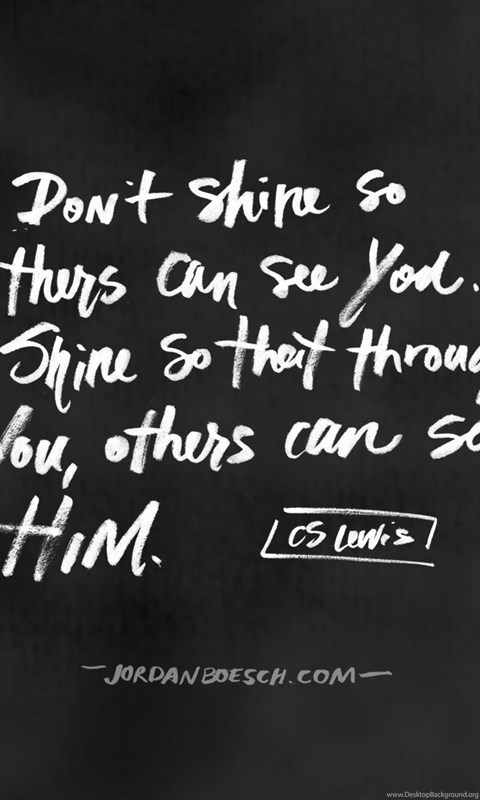 Don't shine so
thers can see you.
Shine so that throug
You, others can se
HiM.
CS Lewis
—JORDANBOESCH.COM—
www.DesktopBackground.org